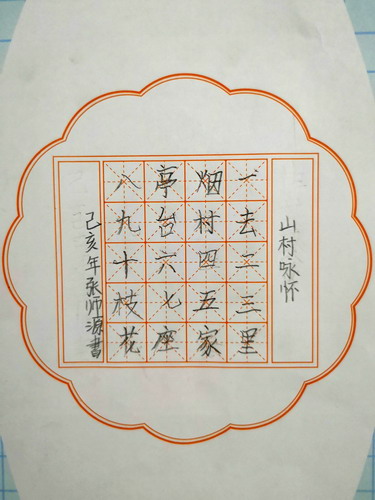 山村咏怀
一去二三里
烟村四五家
亭台六七座
八九十枝花
己亥年张师源書